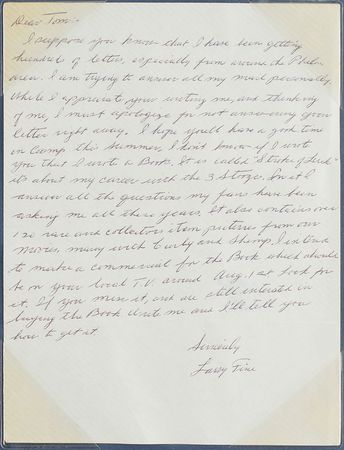 Dear Tom:
I suppose you know that I have been getting
hundreds of letters, especially from around the Phila
area. I am trying to answer all my mail personally.
While I appreciate your writing me, and thinking
of me, I must apologize for not answering your
letter right away. I hope you'll have a good time
in Camp this summer, I don't know if I wrote
you that I wrote a Book. It is called "Stroke of Luck"
it's about my career with the 3 Stooges. In it I
answer all the questions my fans have been
asking me all these years. It also contains over
120 rare and collectors item pictures from our
movies, many with Curly and Shemp. I intend
to make a commercial for the Book which should
be on your local T.V. around Aug. 1st look for
it. If you miss it, and are still interested in
buying the Book write me and I'll tell you
how to get it.
Sincerely
Larry Fine